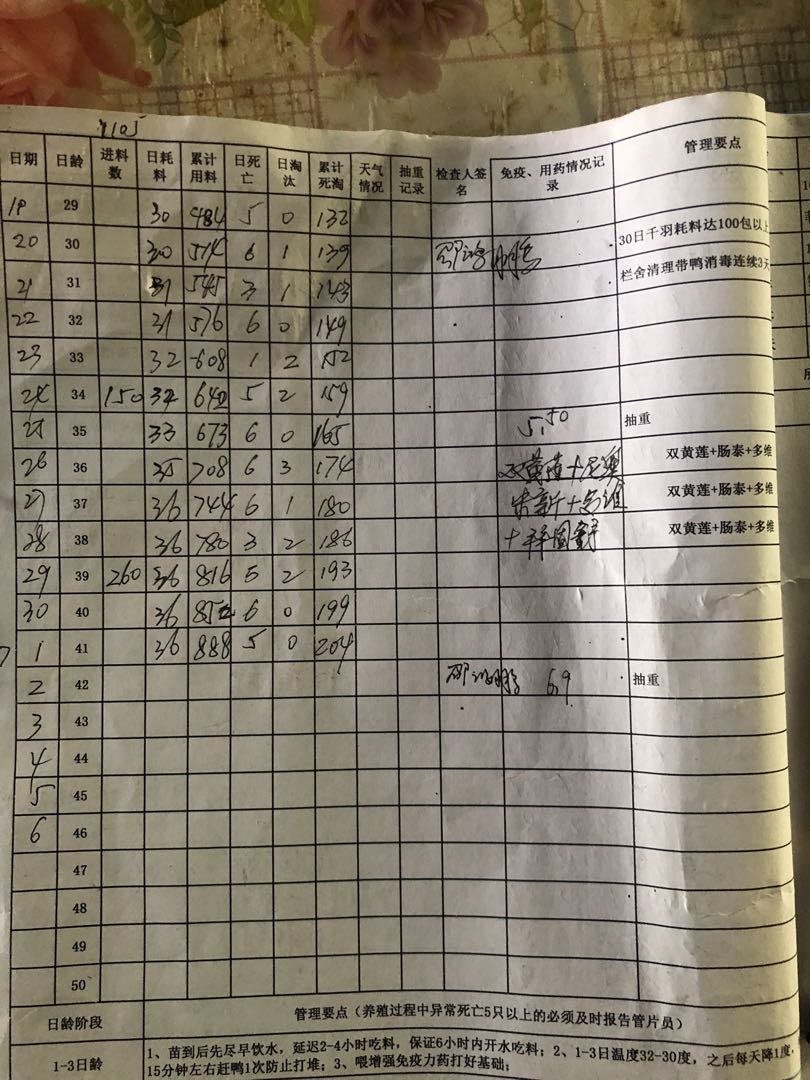 1105
日期 日龄 进料数 日耗料 累计用料 日死亡 日淘汰 累计死淘 天气情况 抽重记录 检查人签名 免疫、用药情况记录 管理要点
19 29 30 484 5 0 132
20 30 30 514 6 1 139 30日千羽耗料达100包以上
21 31 31 545 3 1 143 栏舍清理带鸭消毒连续3天
22 32 31 576 6 0 149
23 33 32 608 1 2 152
24 34 150 32 640 5 2 159
25 35 33 673 6 0 165 5.50 抽重
26 36 35 708 6 3 174 双黄莲+肠泰+多维
27 37 36 744 6 1 180 双黄莲+肠泰+多维
28 38 36 780 3 2 186 双黄莲+肠泰+多维
29 39 260 36 816 5 2 193
30 40 36 852 6 0 199
1 41 36 888 5 0 204
2 42 6.9 抽重
3 43
4 44
5 45
6 46
47
48
49
50
日龄阶段 管理要点（养殖过程中异常死亡5只以上的必须及时报告管片员）
1-3日龄 1、苗到后先尽早饮水，延迟2-4小时吃料，保证6小时内开水吃料；2、1-3日温度32-30度，之后每天降1度，
15分钟左右赶鸭1次防止打堆；3、喂增强免疫力药打好基础；